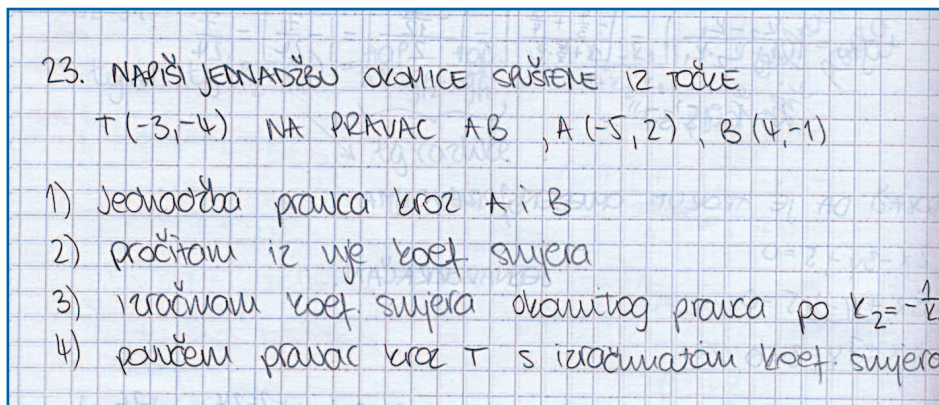 23. NAPIŠI JEDNADŽBU OKOMICE SPUŠTENE IZ TOČKE
T(-3,-4) NA PRAVAC AB, A(-5,2), B(4,-1)
1) Jednadžba pravca kroz A i B
2) pročitam iz nje koef smjera
3) izračunam koef. smjera okomitog pravca po k₂=-1/k
4) povučem pravac kroz T s izračunatom koef. smjera